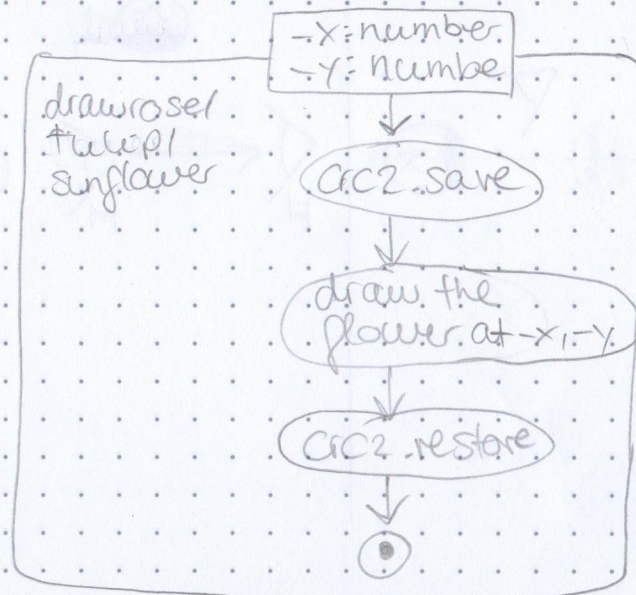 -x: number
-y: numbe
drawrose/
tulip/
sunflower
crc2.save
draw the
flower at -x, -y
crc2.restore